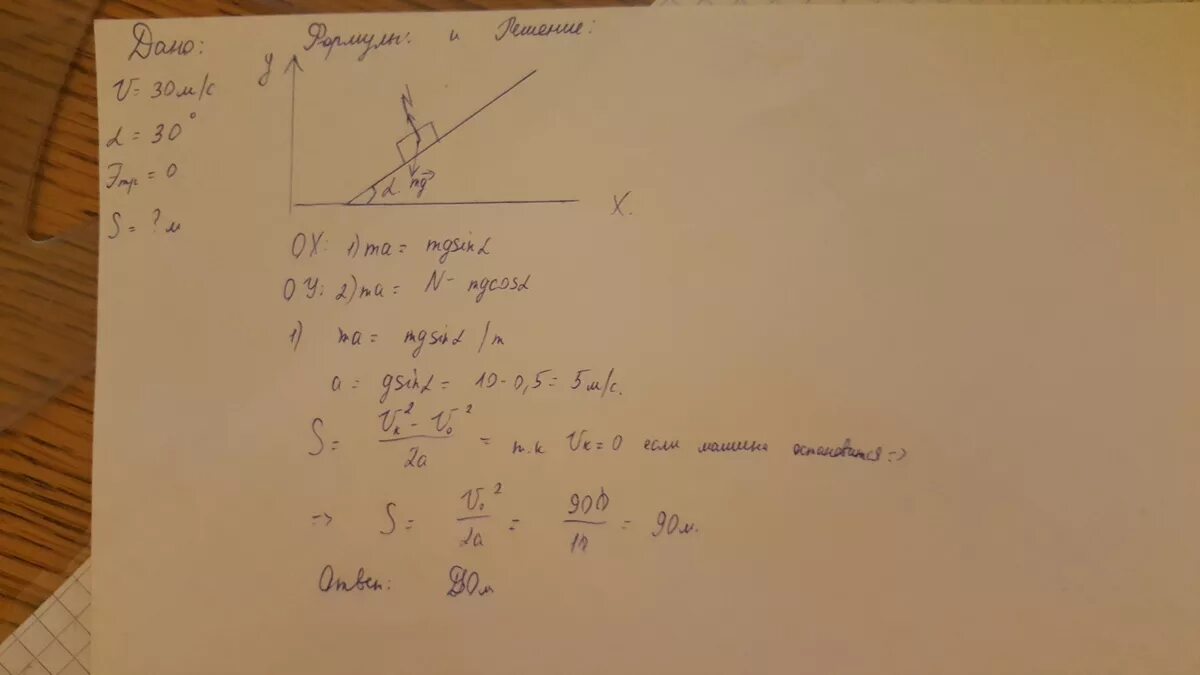 Дано:
V = 30 м/с
α = 30°
Fтр = 0
S = ? м
Формулы и Решение:
y
N
α mg
X.
OX: 1) ma = mgsinα
OY: 2) ma = N - mgcosα
1) ma = mgsinα /m
a = gsinα = 10 · 0,5 = 5 м/с.
S = (Vк² - V₀²)/2a = т.к Vк = 0 если машина остановится =>
=> S = V₀²/2a = 900/10 = 90 м.
Ответ: 90 м